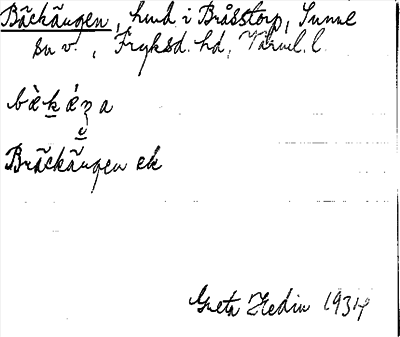 Bäckängen, hmd. i Bråsstorp, Sunne
sn v., Fryksd. hd, Värml. l.
Bräckängen ek
Greta Hedin 1934